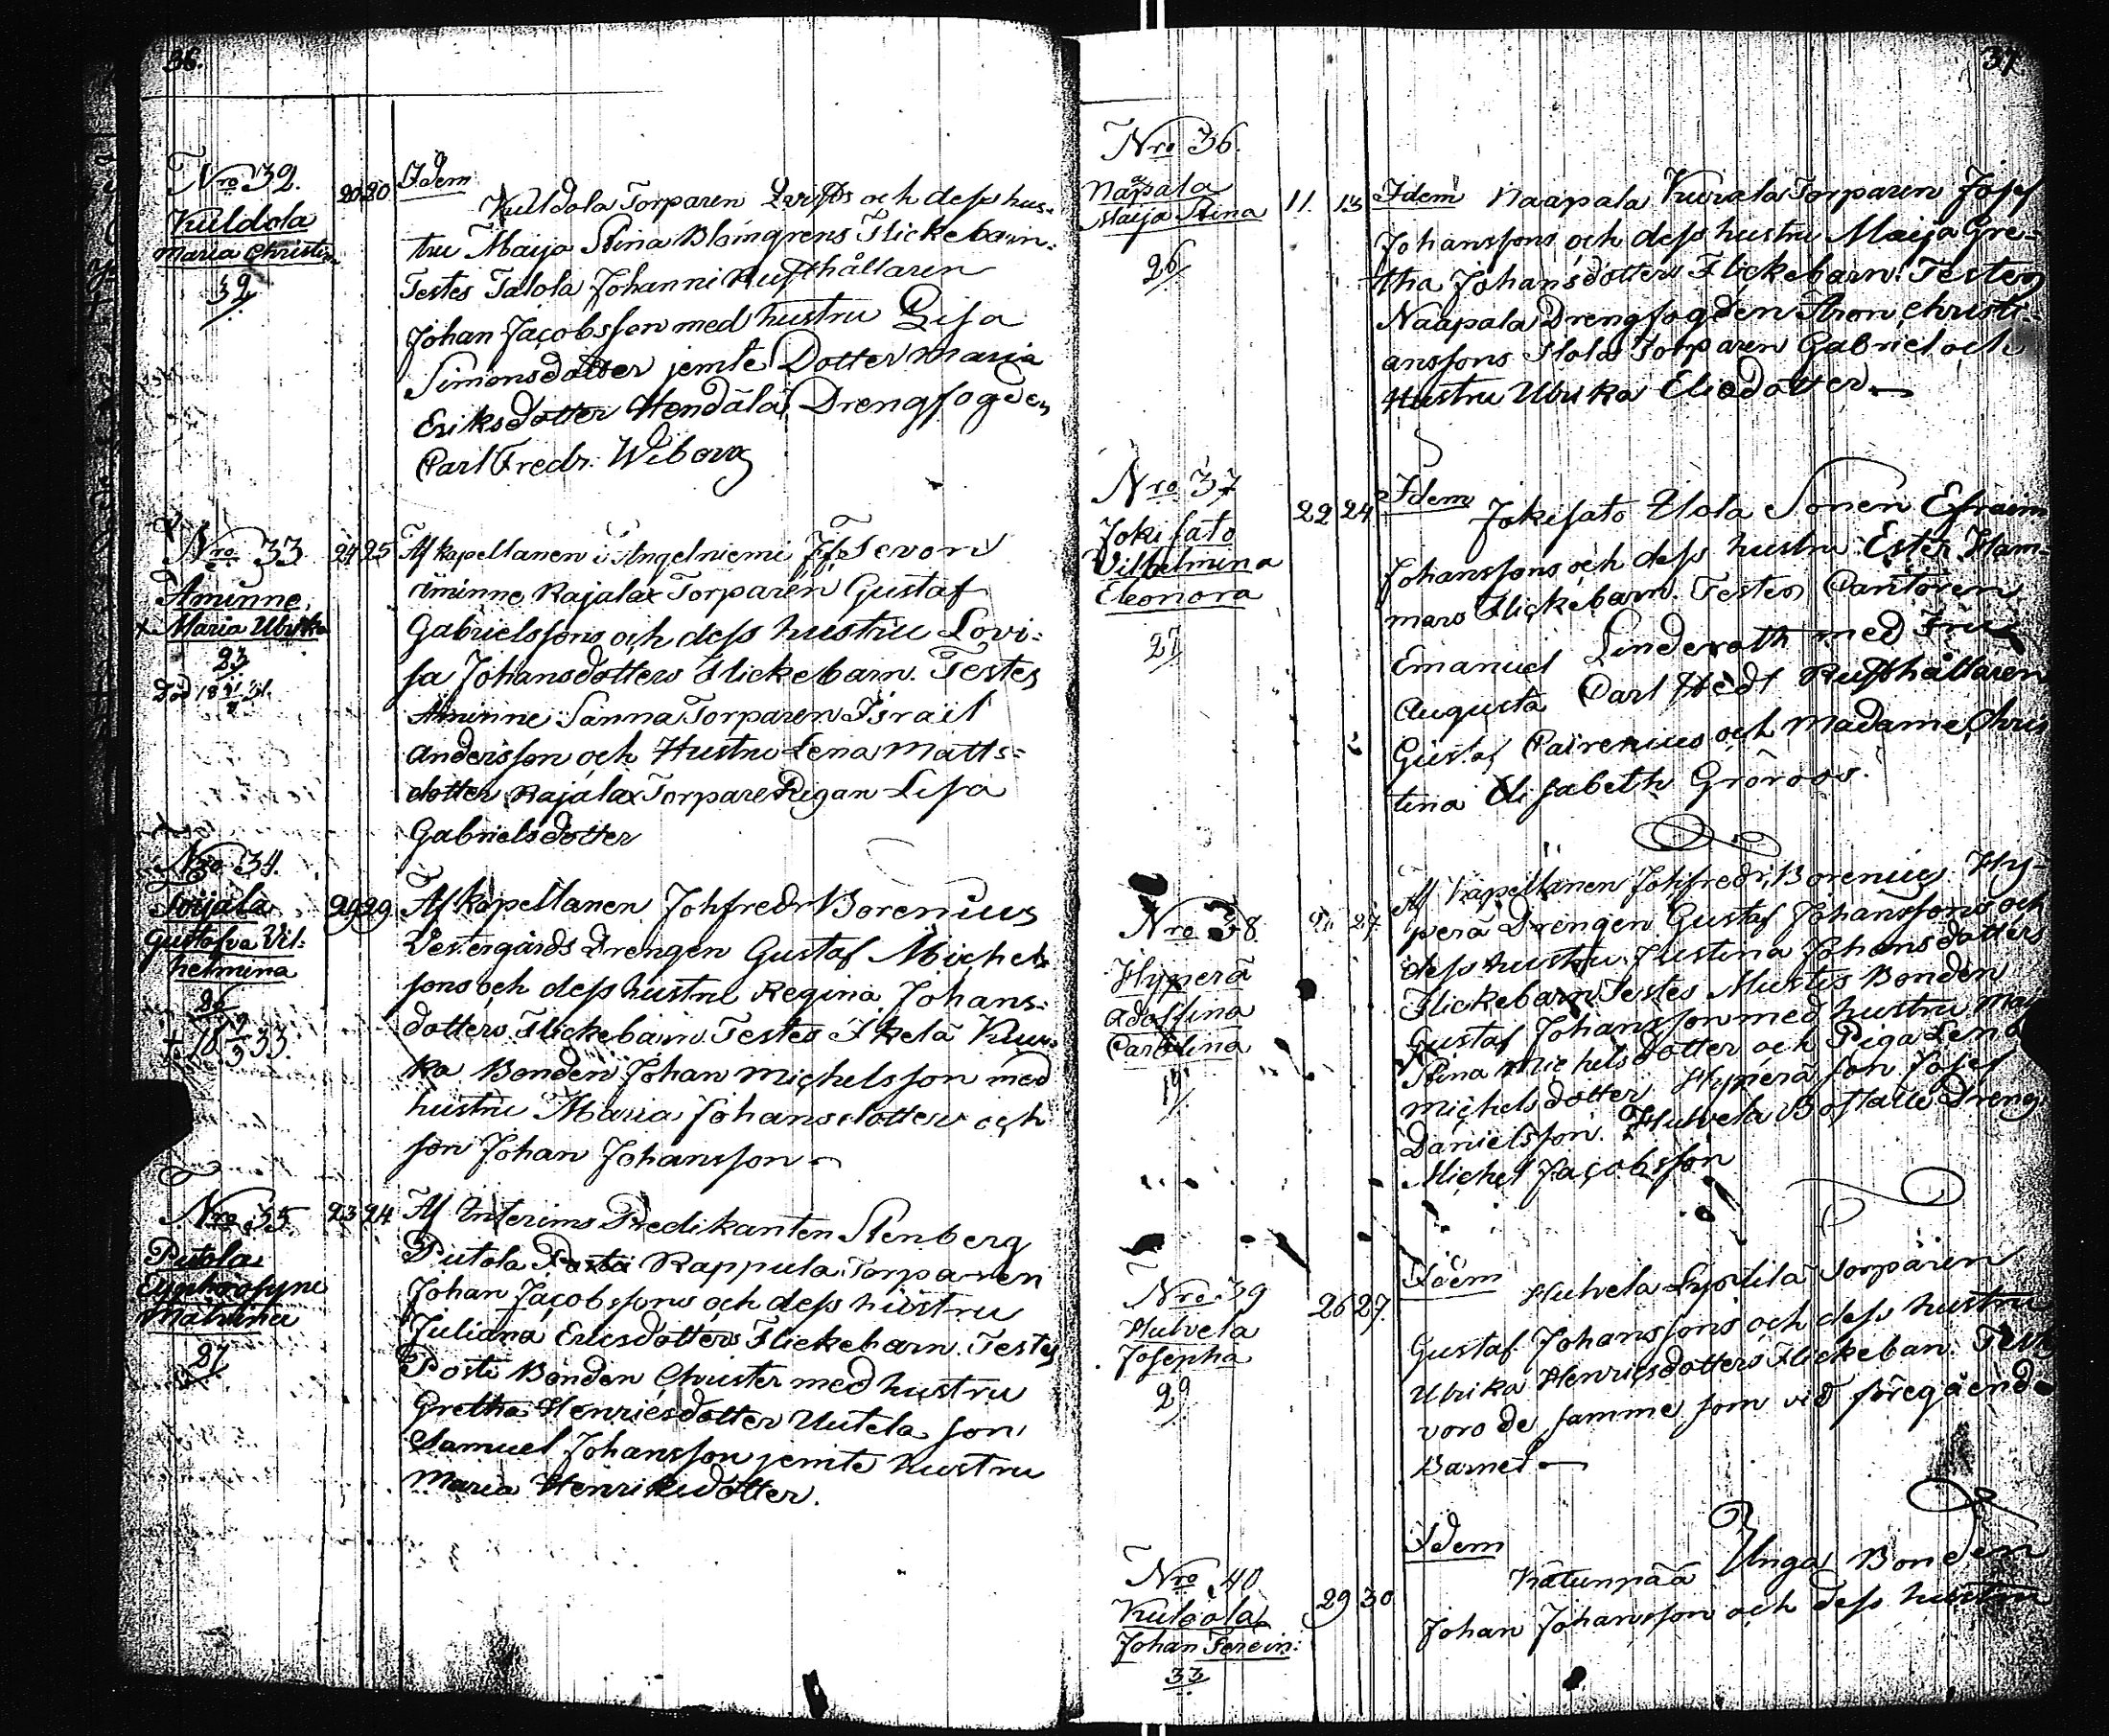 36.
Nro 32.
Kuldola
Maria Christin
32
20 20
Idem
Kuldola Torparen och dess hus-
tru Maija Stina Blomgrens Flickebarn.
Testes Talola Johanni Rusthållaren
Johan Jacobsson med hustru Lisa
Simonsdotter jemte Dotter Maria
Eriksdotter Hendälä Drengfogden
Carl Fredr. Wiborg
Nro 33
Åminne
x Maria Ulrika
23
Död 18
24 25
Af kapellanen i Angelniemi
åminne Rajalax Torparen Gustaf
Gabrielssons och dess hustru Lovi-
sa Johansdotters Flickebarn. Testes
Åminne Sanna Torparen Israel
Andersson och Hustru Lena Matts-
dotter Rajalax Torpare Pigan Lisa
Gabrielsdotter
Nro 34.
Gustafva Vil-
helmina
26
29 29
Af kapellanen Joh fredr Borenius
Vestergårds Drengen Gustaf Michels
sons och dess hustru Regina Johans-
dotters Flickebarn. Testes Ikelä
Bonden Johan Michelsson med
hustru Maria Johansdotter och
son Johan Johansson
Nro 35
Putola
Euphrosyne
Mathilda
27
23 24
Af Interims Predikanten Stenberg
Putola Rappula Torparen
Johan Jacobssons och dess hustru
Juliana Ericsdotters Flickebarn. Testes
Posti Bonden Christer med hustru
Gretha Henricsdotter Uutela son
Samuel Johansson jemte hustru
Maria Henriksdotter.
37
Nro 36.
Naapala
Maija Stina
26
11. 13
Idem Naapala Kurala Torparen Josef
Johanssons och dess hustru Maija Gre-
tha Johansdotters Flickebarn. Testes
Naapala Drengfogden Aron Christi-
anssons Torparen Gabriel och
Hustru Ulrika Eliedotter
Nro 37
Jokisato
Vilhelmina
Eleonora
27
22 24
Idem
Jokisato Ulola Sonen Efraim
Johanssons och dess hustru Ester Ham-
mars Flickebarn. Testes Cantoren
Emanuel Linderoth med Fru
Augusta Carl Hedt Rusthållaren
Gustaf Pairenius och Madame Chris
tina Elisabeth Grönroos.
Nro 38.
Hyperä
Adolfina
Carolina
19
27
Af Kapellanen Joh fredr Borenius Hy-
perä Drengen Gustaf Johanssons och
dess hustru Justina Johansdotters
Flickebarn Testes Mustis Bonden
Gustaf Johansson med hustru Maj
Stina Michelsdotter och Piga Lena
Michelsdotter Hyperä son Josef
Danielsson. Hulvela Boställe Dreng
Michel Jacobsson
Nro 39
Hulvela
Josepha
29
26 27.
Idem Hulvela Torparen
Gustaf Johanssons och dess hustru
Ulrika Henricsdotters Flickebarn. Test
voro de samme som vid föregående
Barnet
Nro 40
Johan
33
29 30
Idem
Katunpää Unga Bonden
Johan Johansson och dess hustru